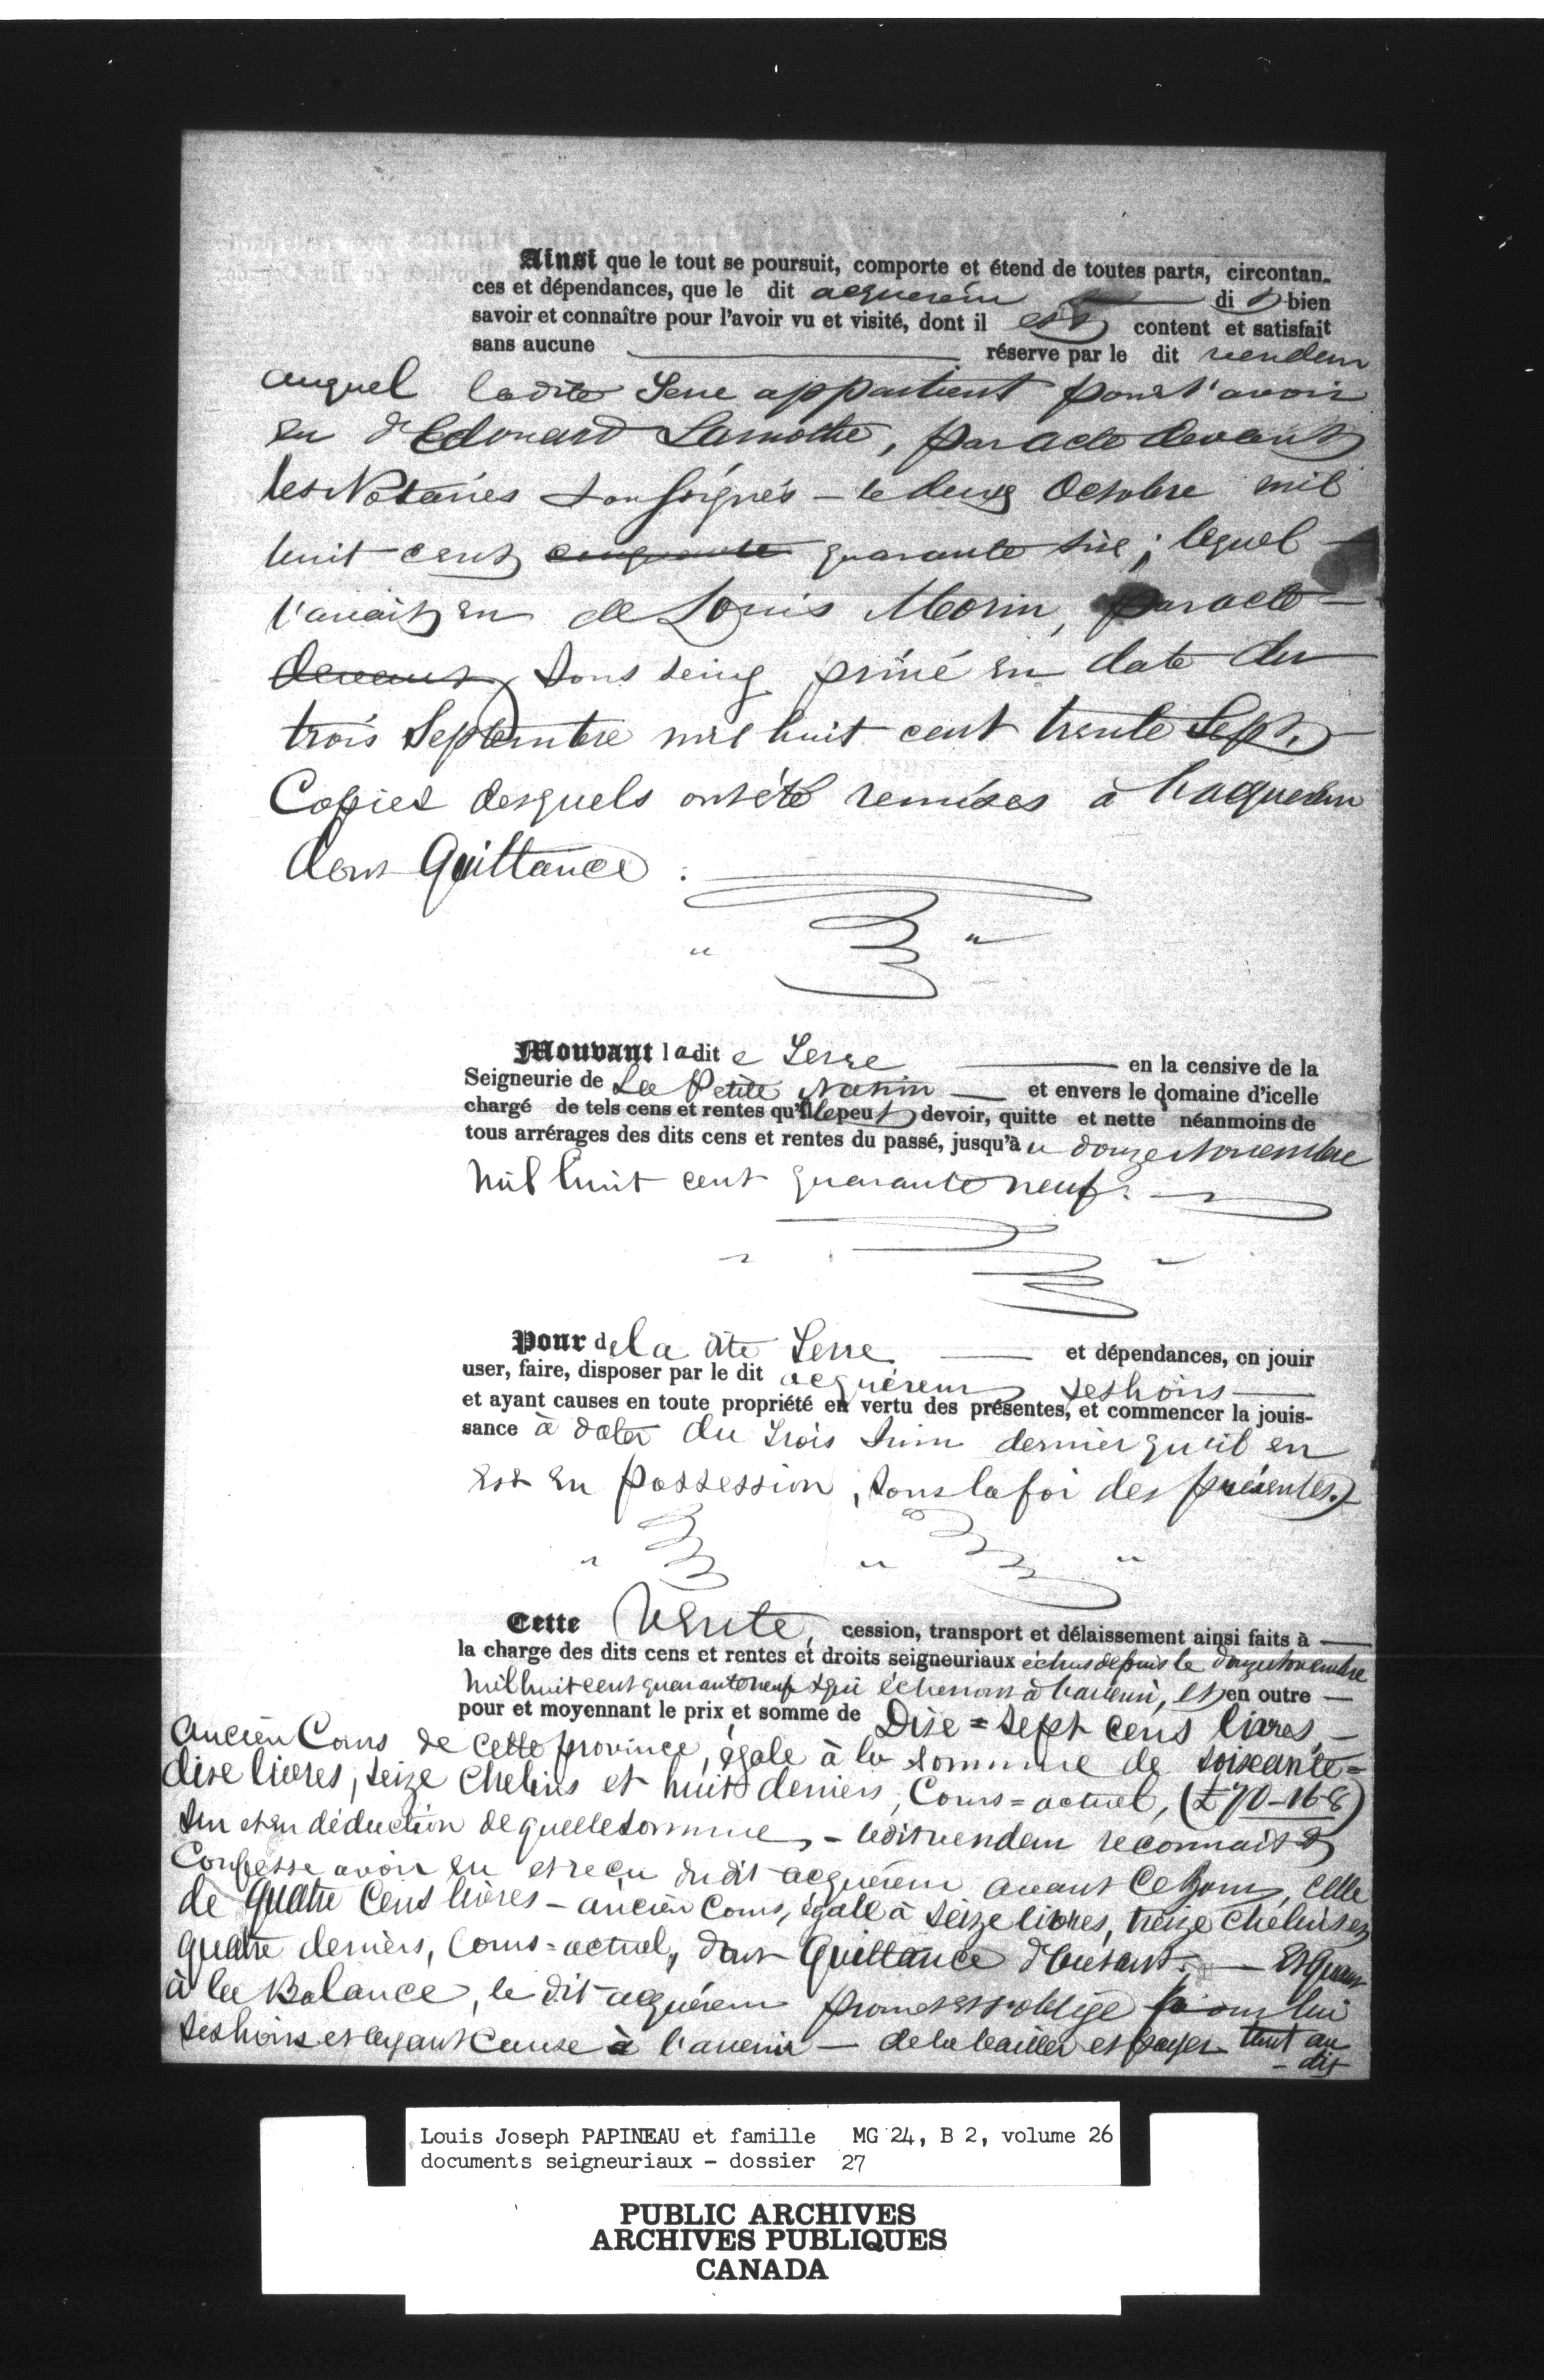 Ainsi que le tout se poursuit, comporte et étend de toutes parts, circontan-
ces et dépendances, que le dit acquereur di t bien
savoir et connaître pour l'avoir vu et visité, dont il est content et satisfait
sans aucune réserve par le dit vendeur
auquel ladite Terre appartient pour l'avoir
eu d'Edouard Lamothe, par acte devant
les Notaires soussignés – le deux Octobre mil
huit cent cinquante quarante six ; lequel
l'avait eu de Louis Morin, par acte
devant sous seing privé en date du
trois Septembre mil huit cent trente Sept,
Copies desquels ont été remises à l'acquereur
dont Quittance :
Mouvant ladit e Terre en la censive de la
Seigneurie de La Petite Nation et envers le domaine d'icelle
chargé de tels cens et rentes qu'elle peut devoir, quitte et nette néanmoins de
tous arrérages des dits cens et rentes du passé, jusqu'à u douze Novembre
Mil huit cent quarante neuf.
Pour de la dite Terre et dépendances, en jouir
user, faire, disposer par le dit acquéreur ses hoirs
et ayant causes en toute propriété en vertu des présentes, et commencer la jouis-
sance à dater du trois Juin dernier qu'il en
est en possession, sous la foi des présentes.
Cette Vente, cession, transport et délaissement ainsi faits à
la charge des dits cens et rentes et droits seigneuriaux échus depuis le douze Novembre
Mil huit cent quarante neuf & qui écherront à l'avenir, et en outre
pour et moyennant le prix et somme de Dix=sept cens livres,
ancien Cours de cette province, égale à la somme de soixante=
dix livres, seize chelins et huit deniers, Cours=actuel, (£70-16-8)
Sur et en déduction de quelle somme, – ledit vendeur reconnait &
Confesse avoir eu et reçu du dit acquéreur avant ce jour, celle
de Quatre Cens livres – ancien Cours, égale à seize livres, treize chelins et
quatre deniers, Cours=actuel, dont Quittance d'autant. — Et quant
à la Balance, le dit acquéreur promet et s'oblige pour lui
ses hoirs et ayant cause à l'avenir – de la bailler et payer tant au
- dit
Louis Joseph PAPINEAU et famille MG 24, B 2, volume 26
documents seigneuriaux – dossier 27
PUBLIC ARCHIVES
ARCHIVES PUBLIQUES
CANADA